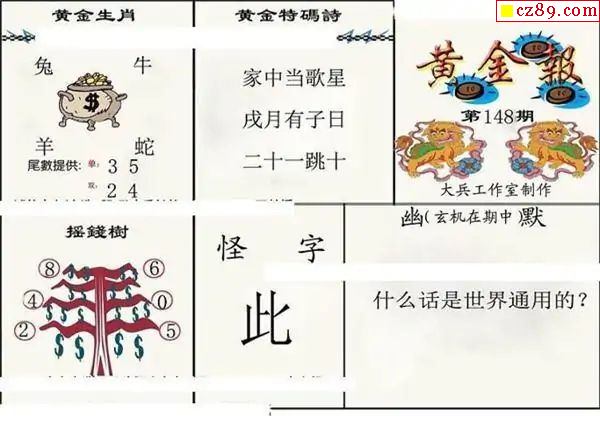 cz89.com
黄金生肖
兔 牛
$
羊 蛇
尾數提供: 单: 3 5
双: 2 4
黄金特碼詩
家中当歌星
戌月有子日
二十一跳十
黄金報
第148期
大兵工作室制作
摇錢樹
8 6
4 0
2 5
怪 字
此
幽(玄机在期中)默
什么话是世界通用的?